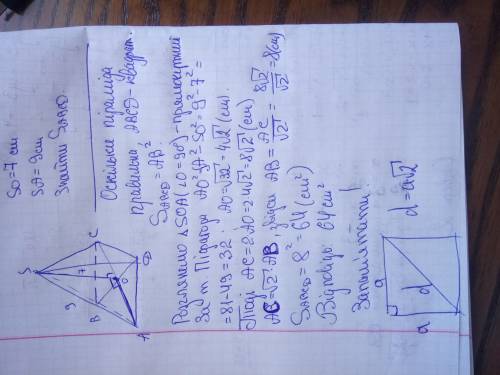 SO = 7 cm
SA = 9 cm
Знайти S ABCD.
Оскільки піраміда
правильна, ABCD - квадрат.
S ABCD = AB²
Розглянемо △SOA (∠O = 90°) - прямокутний
За т. Піфагора AO² = SA² - SO² = 9² - 7² =
= 81 - 49 = 32. AO = √32 = 4√2 (см).
Тоді AC = 2AO = 2·4√2 = 8√2 (см)
AC = √2·AB, звідси AB = AC/√2 = 8√2/√2 = 8 (см)
S ABCD = 8² = 64 (см²)
Відповідь: 64 см²
Запам'ятати!
d = a√2
S
9
7
B
C
O
A
D
a
a
d